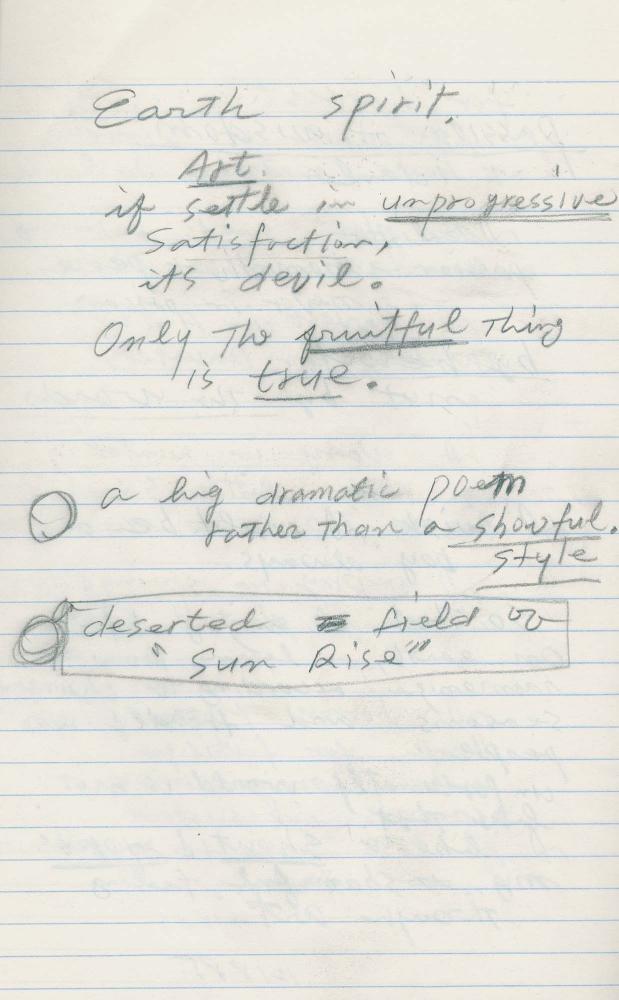 Earth spirit.
Art.
if settle in unprogressive
Satisfaction,
its devil.
Only The fruitful Thing
is true.
a big dramatic poem
rather Than a showful.
style
deserted field
"Sun Rise"